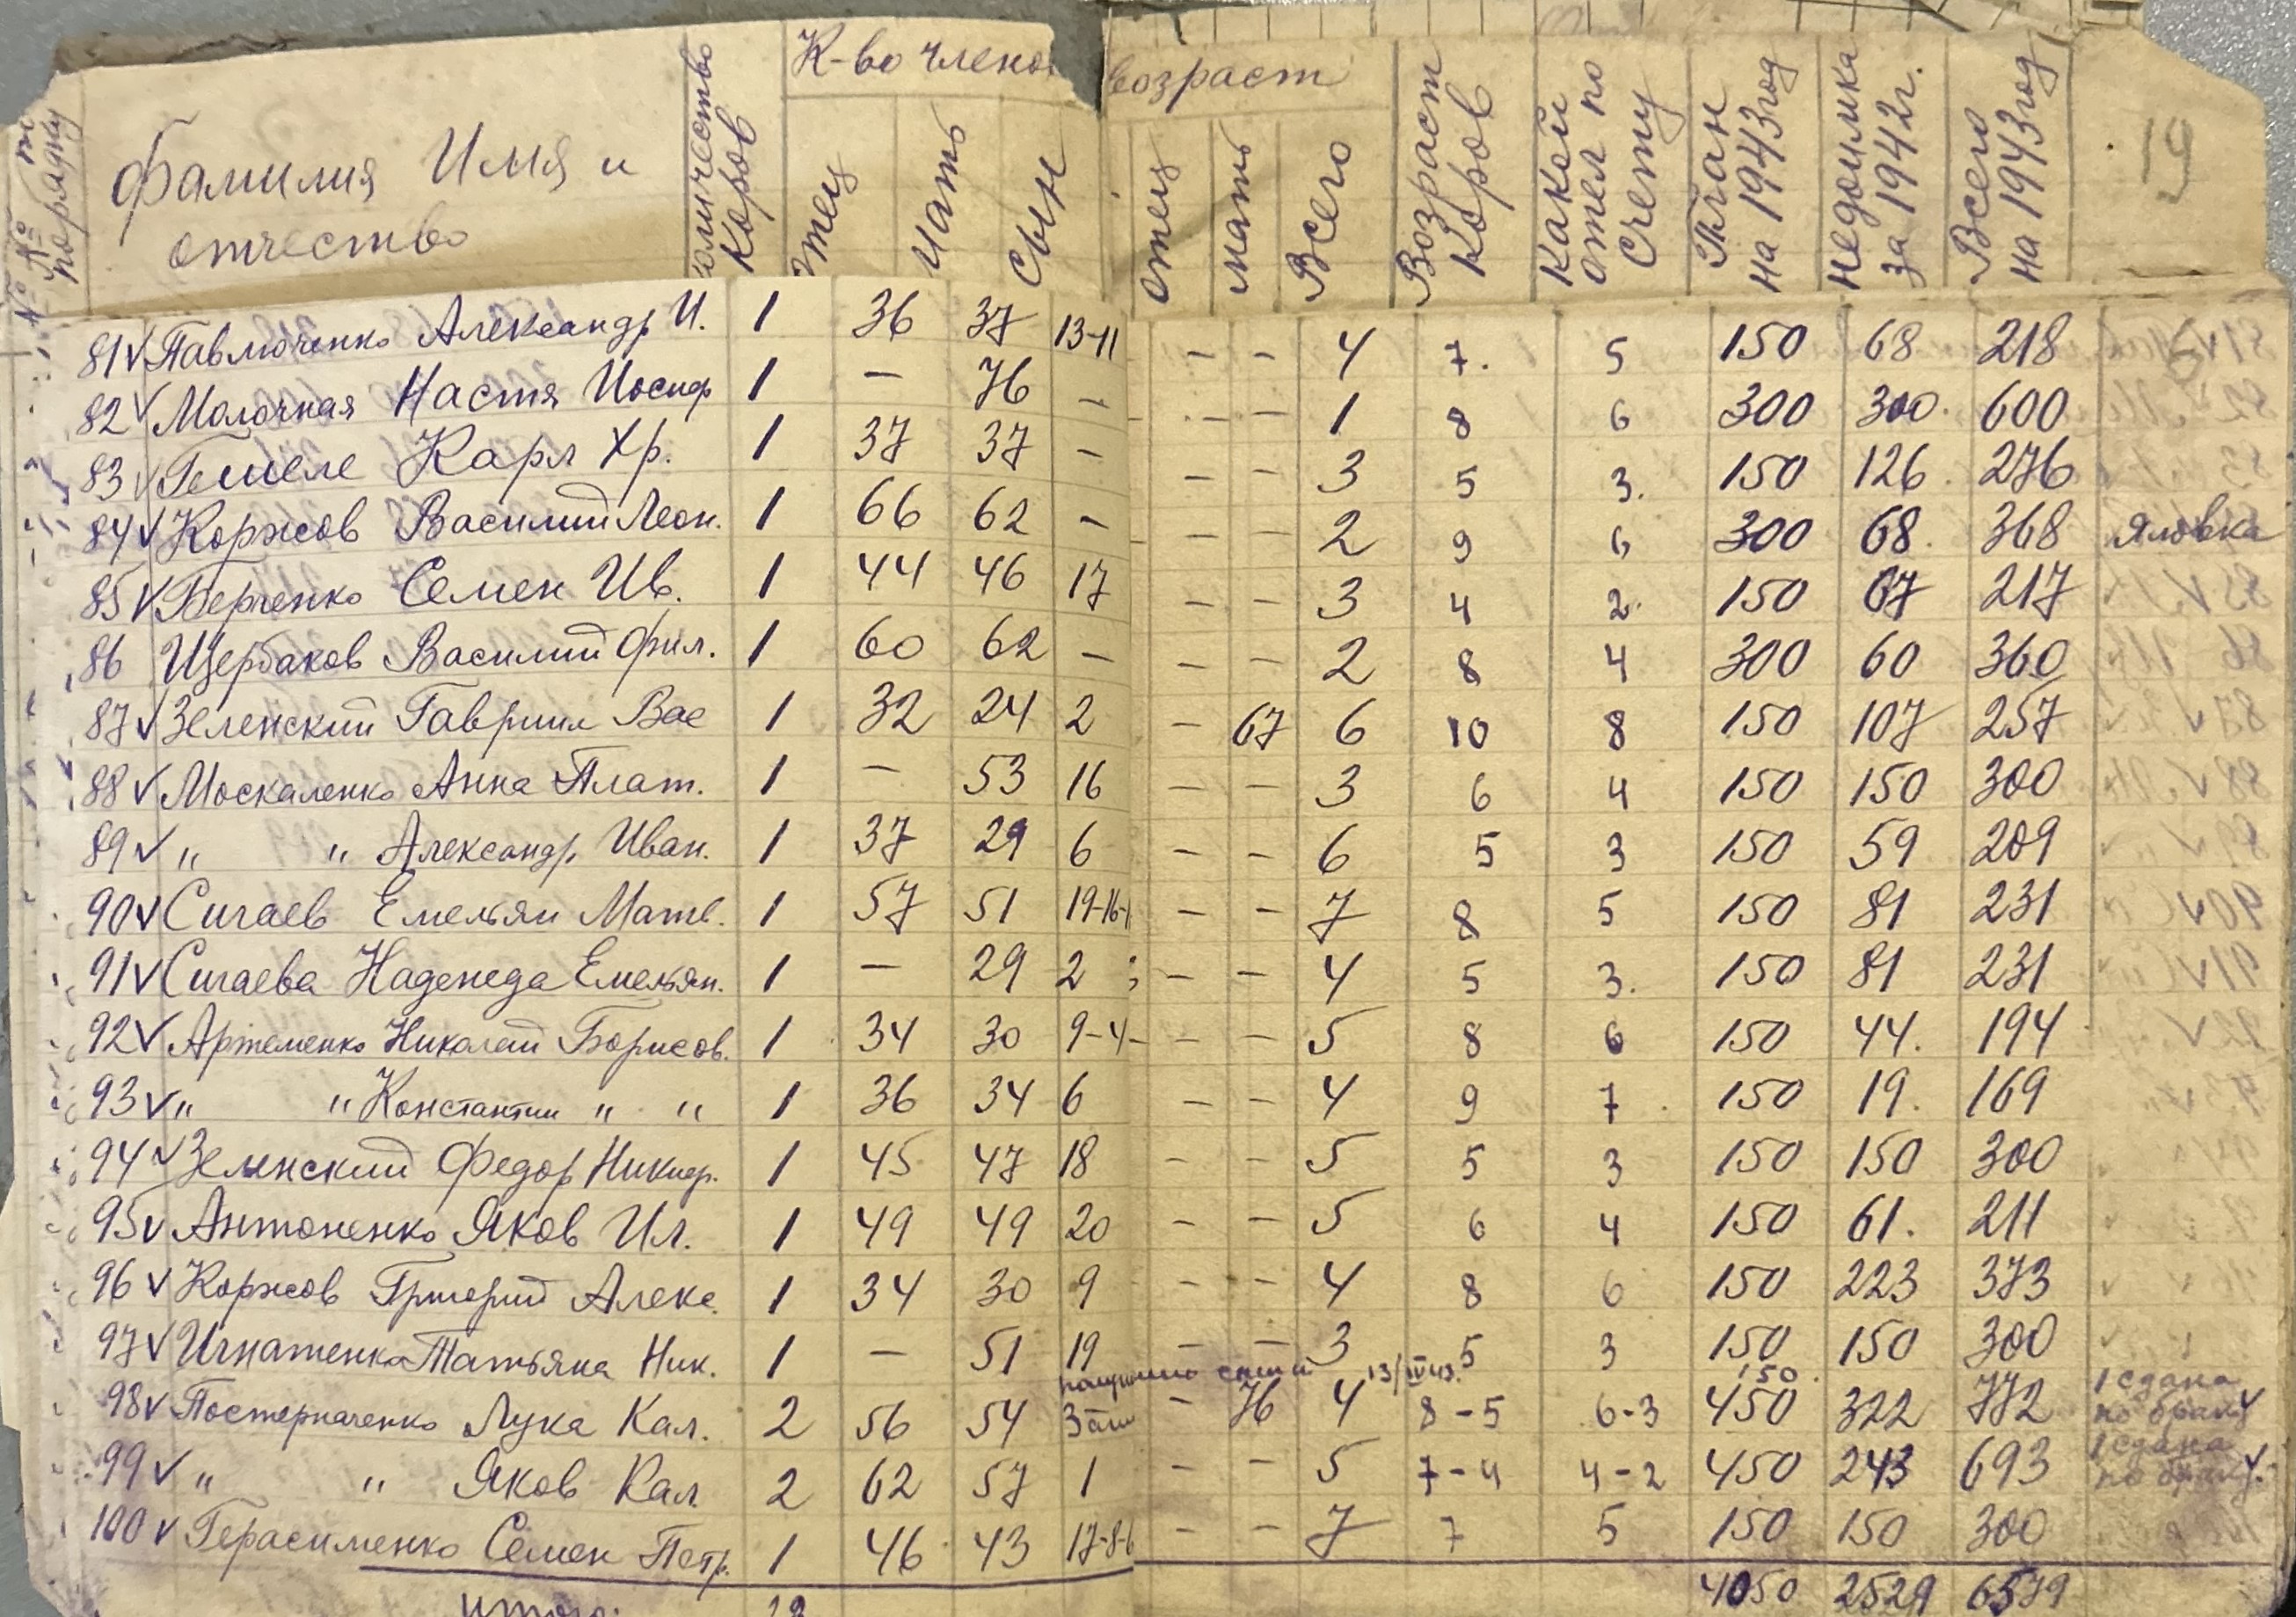 К-во члено возраст
№ № п порядку Фамилия Имя и отчество Количество Коров отец Мать Сын отец мать Всего Возраст Коров Какой отел по счету План на 1943 год недоимка за 1942 г. Всего на 1943 год 19
81 √ Павлюченко Александр И. 1 36 37 13-11 - - 4 7. 5 150 68 218
82 √ Молочная Настя Иосиф 1 - 76 - - - 1 8 6 300 300. 600
83 √ Гемеле Карл Хр. 1 37 37 - - - 3 5 3. 150 126 276
84 √ Коржов Василий Леон. 1 66 62 - - - 2 9 6 300 68. 368 Яловка
85 √ Берченко Семен Ив. 1 44 46 17 - - 3 4 2. 150 67 217
86 Щербаков Василий Фил. 1 60 62 - - - 2 8 4 300 60 360
87 √ Зеленский Гавриил Вас 1 32 24 2 - 67 6 10 8 150 107 257
88 √ Москаленко Анна Плат. 1 - 53 16 - - 3 6 4 150 150 300
89 √ " " Александр Иван. 1 37 29 6 - - 6 5 3 150 59 209
90 √ Сигаев Емельян Матв. 1 57 51 19-16-1 - - 7 8 5 150 81 231
91 √ Сигаева Надежда Емельян. 1 - 29 2 - - 4 5 3. 150 81 231
92 √ Артеменко Николай Борисов. 1 34 30 9-4- - - 5 8 6 150 44. 194
93 √ " " Константин " " 1 36 34 6 - - 4 9 7 150 19. 169
94 √ Зеленский Федор Никиф. 1 45 47 18 - - 5 5 3 150 150 300
95 √ Антоненко Яков Ил. 1 49 49 20 - - 5 6 4 150 61. 211
96 √ Коржов Григорий Алекс. 1 34 30 9 - - 4 8 6 150 223 373
97 √ Игнатенко Татьяна Ник. 1 - 51 19 - - 3 5 3 150 150 300
13/IV 43. 150 1 сдана
98 √ Постерначенко Лука Кал. 2 56 54 - 76 4 8-5 6-3 450 322 772 по браку √
1 сдана
99 √ " " Яков Кал 2 62 57 1 - - 5 7-4 4-2 450 243 693 по браку √.
100 √ Герасименко Семен Петр. 1 46 43 17-8-6 - - 7 7 5 150 150 300
Итого: 4050 2529 6579